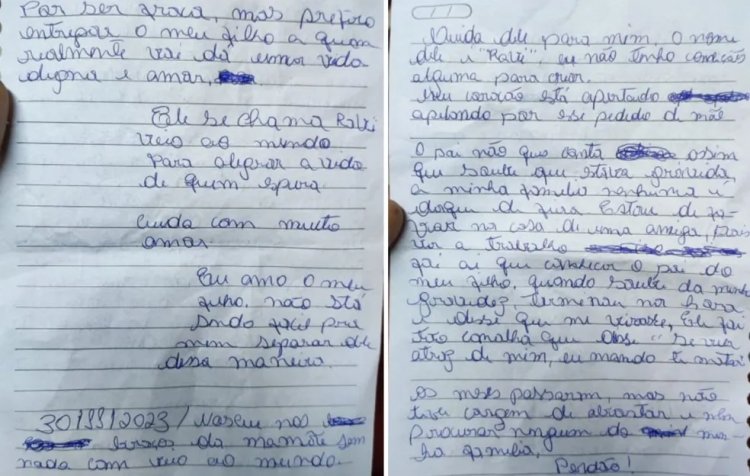 Por ser fraca, mas prefiro
entregar o meu filho a quem
realmente vai dá uma vida
digna e amor.
Ele se chama Ravi
veio ao mundo
para alegrar a vida
de quem espera
cuida com muito
amor.
Eu amo o meu
filho, não stá
sendo fácil para
mim separar dele
dessa maneira.
30/11/2023 / Nasceu nos
braços da mamãe sem
nada com veio ao mundo.
Cuida dele para mim, o nome
dele é "Ravi", eu não tenho condições
alguma para criar.
Meu coração está apertado
apelando por esse pedido de mãe
O pai não quis conta assim
que soube que estava grávida,
a minha família nenhuma é
daqui de fora. Estou de fa-
vor na casa de uma amiga,
vir a trabalho
foi ai que conheci o pai do
meu filho, quando soube da minha
gravidez, terminou na hora
e disse que me virasse, Ele foi
tão canalha que disse "Se vier
atrás de mim, eu mando te matar"
os meses passaram, mas não
tive coragem de abortar e nem
procurar ninguem da mi-
ha família,
Perdão!